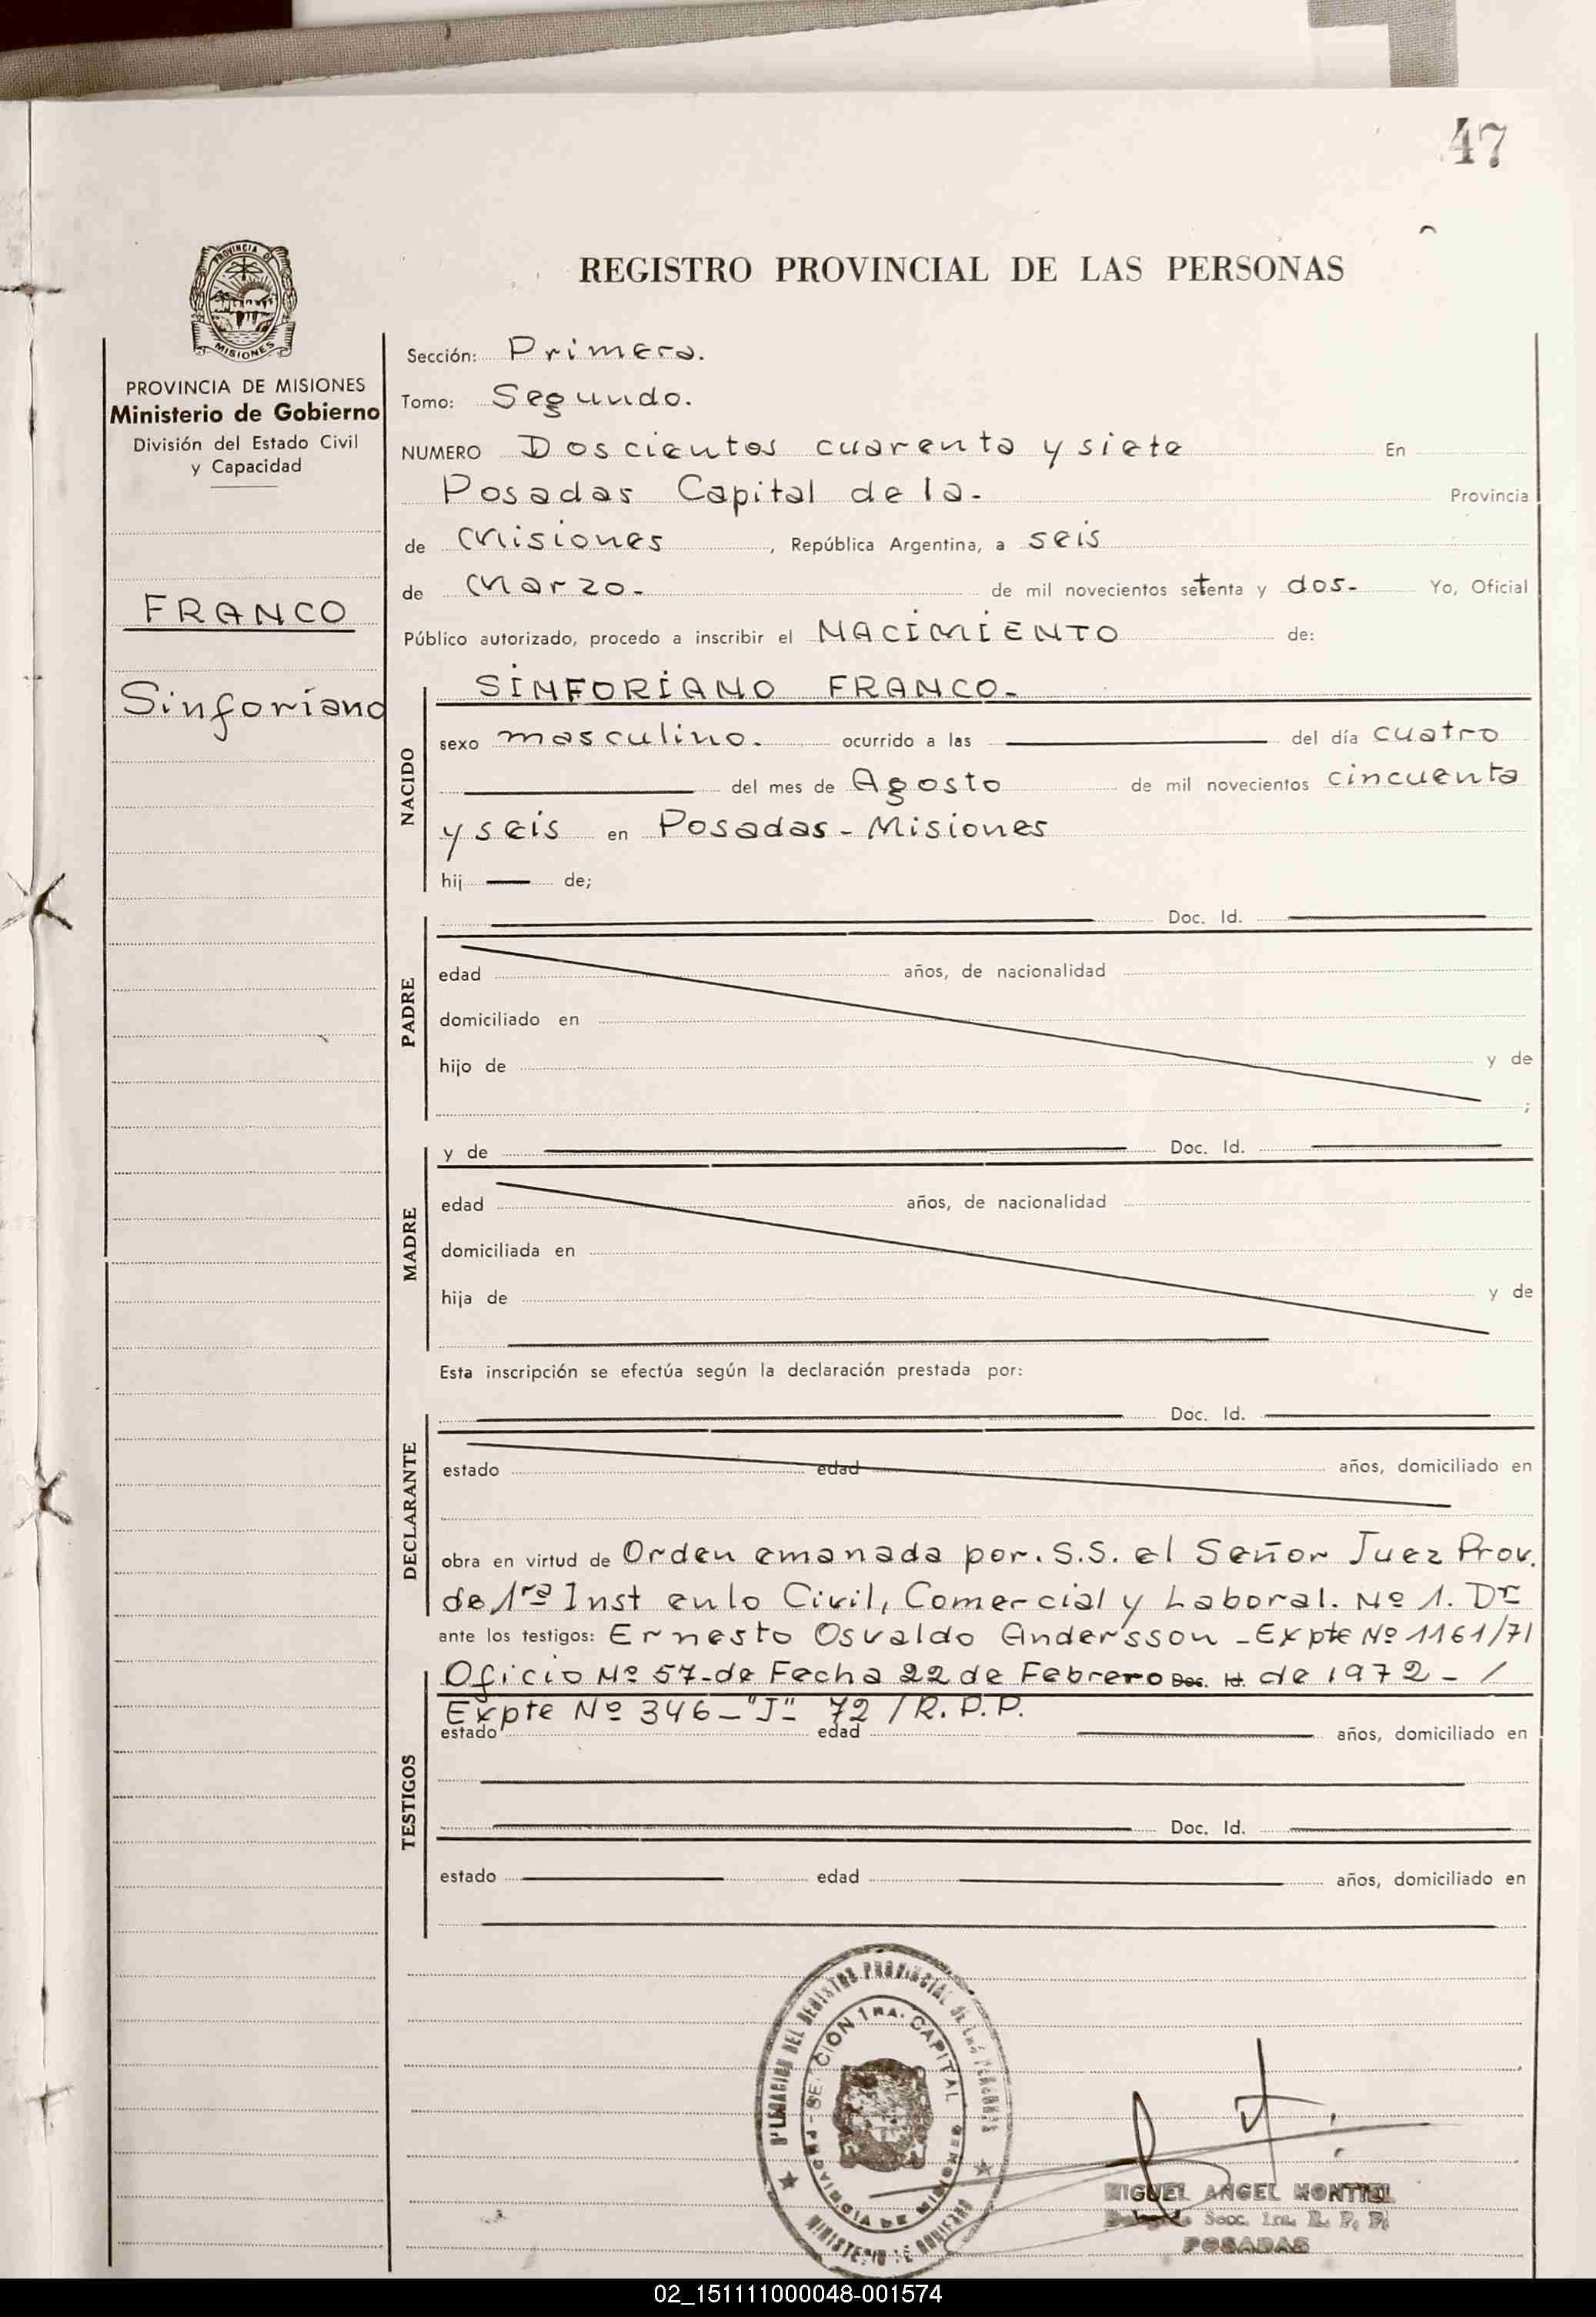 47
REGISTRO PROVINCIAL DE LAS PERSONAS
PROVINCIA DE
MISIONES
PROVINCIA DE MISIONES
Ministerio de Gobierno
División del Estado Civil
y Capacidad
FRANCO
Sinforiano
Sección: Primera.
Tomo: Segundo.
NUMERO Doscientos cuarenta y siete En
Posadas Capital de la- Provincia
de Misiones, República Argentina, a seis
de Marzo- de mil novecientos setenta y dos- Yo, Oficial
Público autorizado, procedo a inscribir el NACIMIENTO de:
NACIDO
SINFORIANO FRANCO-
sexo masculino. ocurrido a las del día cuatro
del mes de Agosto de mil novecientos cincuenta
y seis en Posadas - Misiones
hij de;
PADRE
Doc. Id.
edad años, de nacionalidad
domiciliado en
hijo de y de
;
MADRE
y de Doc. Id.
edad años, de nacionalidad
domiciliada en
hija de y de
Esta inscripción se efectúa según la declaración prestada por:
DECLARANTE
Doc. Id.
estado edad años, domiciliado en
obra en virtud de Orden emanada por. S.S. el Señor Juez Prov.
de 1ra Inst en lo Civil, Comercial y Laboral. Nº 1. Dr
ante los testigos: Ernesto Osvaldo Andersson - Expte Nº 1161/71
TESTIGOS
Oficio Nº 57- de Fecha 22 de Febrero Doc. Id. de 1972 - /
Expte Nº 346 - "J" - 72 / R. P. P.
estado edad años, domiciliado en
Doc. Id.
estado edad años, domiciliado en
DELEGACION DEL REGISTRO PROVINCIAL DE LAS PERSONAS
SECCION 1RA. CAPITAL
PROVINCIA DE MISIONES
MINISTERIO DE GOBIERNO
MIGUEL ANGEL MONTIEL
Delegado Secc. 1ra. R. P. P.
POSADAS
02_151111000048-001574